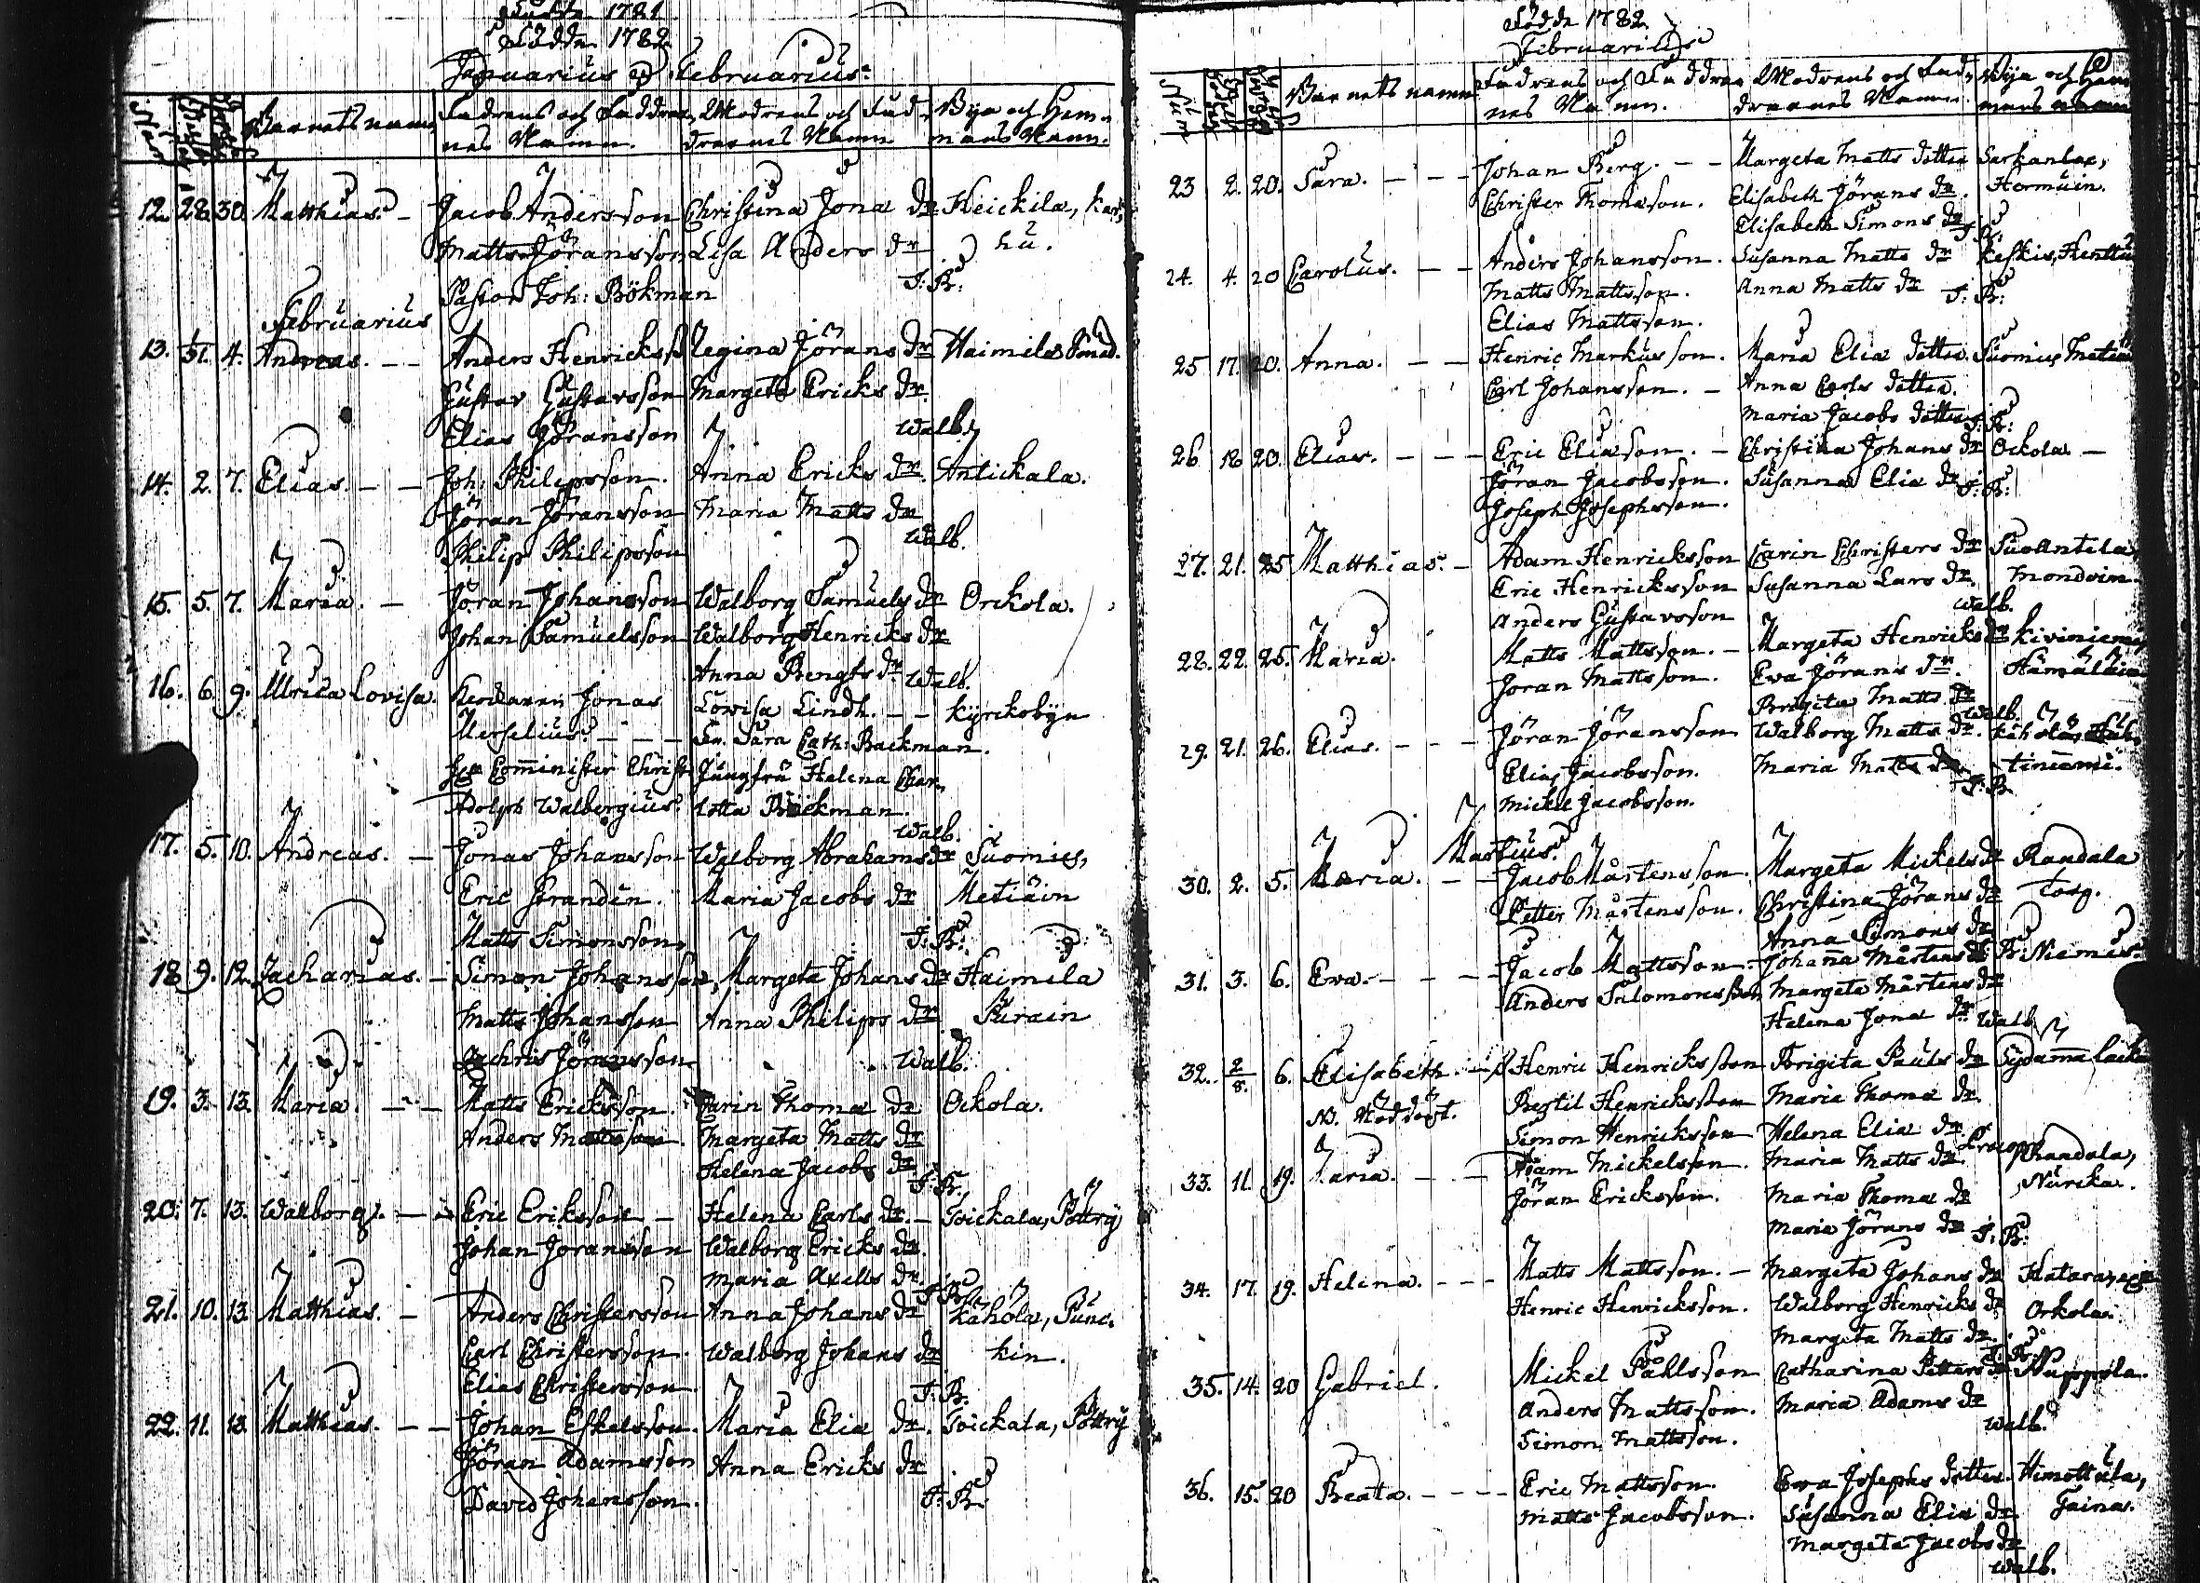 Födde 1782.
Januarius Februarius.
Num
Barnets namn
Fadrens och Faddrar-
nes Namn.
Modrens och Fad-
drarnes Namn
Bya och Hem-
mans Namn.
12. 28. 30. Matthias. - Jacob Andersson Christina Jona dr Heickila, Kar-
Matts Jöransson Lisa Anders dr hu.
Pastor Joh: Bökman J: B:
Februarius
13. 31. 4. Andreas. - - Anders Henrickss Regina Jörans dr Haimila
Gustav Gustavsson Margeta Ericks dr
Elias Jöransson Walb.
14. 2. 7. Elias. - - Joh: Philipsson. Anna Ericks dr Antickala.
Jöran Jöransson Maria Matts dr
Philip Philipsson Walb.
15. 5. 7. Maria. - Jöran Johansson Walborg Samuels dr Orckola.
Johan Samuelsson Walborg Henricks dr
Anna Bengts dr Walb.
16. 6. 9. Ulrica Lovisa. Jonas Lowisa Lindh. - - Kyrckobyn
- - - Sara Cath: Backman.
Comminister Christ Jungfru Helena Char-
Adolph Walbergius lotta Böckman
Walb.
17. 5. 10. Andreas. - Jonas Johansson Walborg Abrahams dr Suomies,
Eric Strandin. Maria Jacobs dr Metiäin
Matts Simonsson J: B:
18. 9. 12. Zacharias. - Simon Johansson, Margeta Johans dr Haimila
Matts Johansson Anna Philips dr Purain
Zachris Jöransson Walb.
19. 3. 13. Maria. - - Matts Ericksson. Carin Thomæ dr Ockola.
Anders Mattsson. Margeta Matts dr
Helena Jacobs dr J: B:
20. 7. 13. Walborg. - - Eric Eriksson - Helena Carls dr. - Toickala, Pöttry
Johan Joransson Walborg Ericks dr.
Maria Axells dr. J: B:
21. 10. 13. Matthias. - Anders Christersson Anna Johans dr Kähölä, Punc-
Carl Christersson. Walborg Johans dr kin.
Elias Christersson J: B:
22. 11. 13. Matthias. - - Johan Eskelsson. Maria Eliæ dr. Toickala, Pöttry
Jöran Adamsson Anna Ericks dr
David Johansson. J: B:
Födde 1782.
Februarius
Num
Barnets namn
Fadrens och Faddrar
nes Namn.
Modrens och Fad-
drarnes Namn
Bya och Hem
mans Namn
23 2. 20. Sara. - - - Johan Berg. - - Margeta Matts dotter Sarkanlax,
Christer Thomæson. Elisabeth Jörans dr.
Elisabeth Simons dr J: B:
24. 4. 20 Carolus. - - Anders Johansson. Susanna Matts dr Keskis, Henttu
Matts Mattsson. Anna Matts dr J: B:
Elias Mattsson.
25 17. 20. Anna. - - Henric Markusson. Maria Eliæ dotter. Suomies, Metiä
Carl Johansson. - Anna Carls dotter.
Maria Jacobs dotter J: B:
26 18 20. Elias. - - - Eric Eliæson. - Christina Johans dr Ockola -
Jöran Jacobsson. Susanna Eliæ dr J: B:
Joseph Josephsson.
27. 21. 25 Matthias. - Adam Henricksson Carin Christers dr Suo Antila
Eric Henricksson Susanna Lars dr.
Anders Gustavsson Walb.
28. 22. 25. Maria. Matts Mattsson. - Margeta Henricks dr Kiviniemi
Joran Mattsson. Eva Jörans dr. Hämäläin
Brigita Matts dr Walb.
29. 21. 26. Elias. - - - Jöran Jöransson Walborg Matts dr. Kähölä,
Elias Jacobsson. Maria Matts dr J: B:
Mickel Jacobsson.
Martius.
30. 2. 5. Maria. - - Jacob Mårtensson. Margeta Mickels dr Randala
Petter Mårtensson. Christina Jörans dr Torg.
Anna Simons dr
31. 3. 6. Eva. - - - - Jacob Mattsson. Johana Mårtens dr
Anders Salomonsson Margeta Mårtens dr
Helena Jona dr Walb.
32. 2/8. 6. Elisabeth. - Henric Henricksson Brigita Påuls dr
Bertil Henricksson Maria Thomæ dr.
Simon Henricksson Helena Eliæ dr
33. 11. 19. Maria. - - - Adam Mickelsson. Maria Matts dr. Randala,
Jöran Ericksson. Maria Thomæ dr Nurcka.
Maria Jörans dr J: B:
34. 17. 19. Helena. - - - Matts Mattsson. - Margeta Johans dr
Henric Henricksson. Walborg Henricks dr Orkola.
Margeta Matts dr. J: B:
35. 14. 20 Gabriel. Mickel Påhlsson Catharina Petters dr Nuppola.
Anders Mattsson. Maria Adams dr
Simon Mattsson. Walb.
36. 15. 20 Beata. - - - - Eric Mattsson. Eva Josephs dotter. Himottula,
Matts Jacobsson. Susanna Eliæ dr Taina.
Margeta Jacobs dr
Walb.